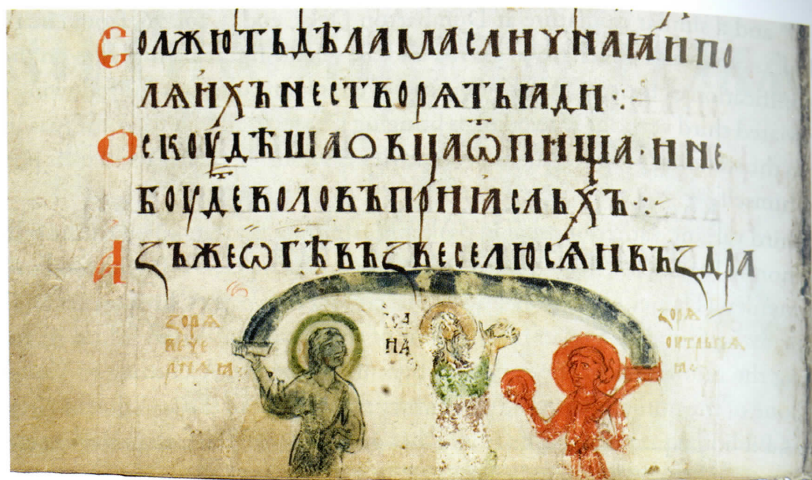 Солжютьдѣламасличнаꙗипо
лѧихънестворѧтьꙗди·:·
Оскоудѣшаовцаѿпища·ине
боудеволовъприꙗсльхъ·:·
Азъжеѡгѣвъꙁвеселюсѧивъꙁдра
ꙁорѧ
вече
рнѧꙗ
ꙁорѧ